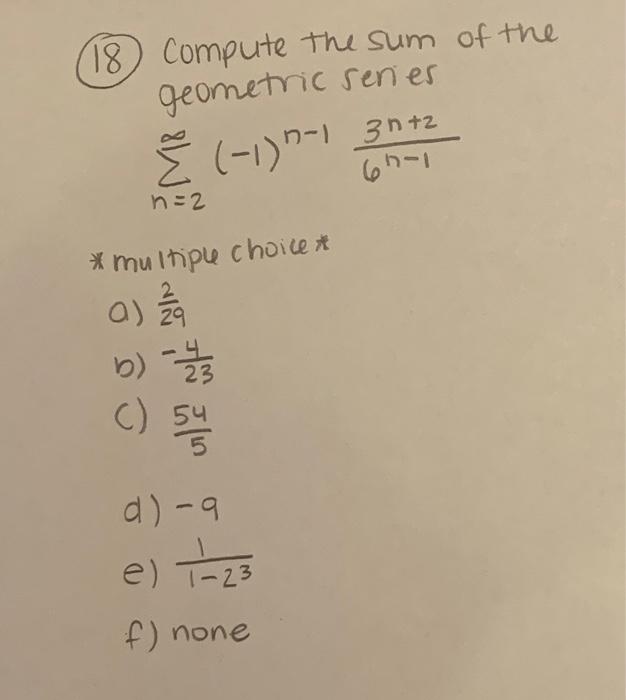 18 Compute the sum of the
geometric series
∞
Σ (-1)^{n-1} \frac{3^{n+2}}{6^{n-1}}
n=2
*multiple choice*
a) \frac{2}{29}
b) \frac{-4}{23}
c) \frac{54}{5}
d) -9
e) \frac{1}{1-2^3}
f) none